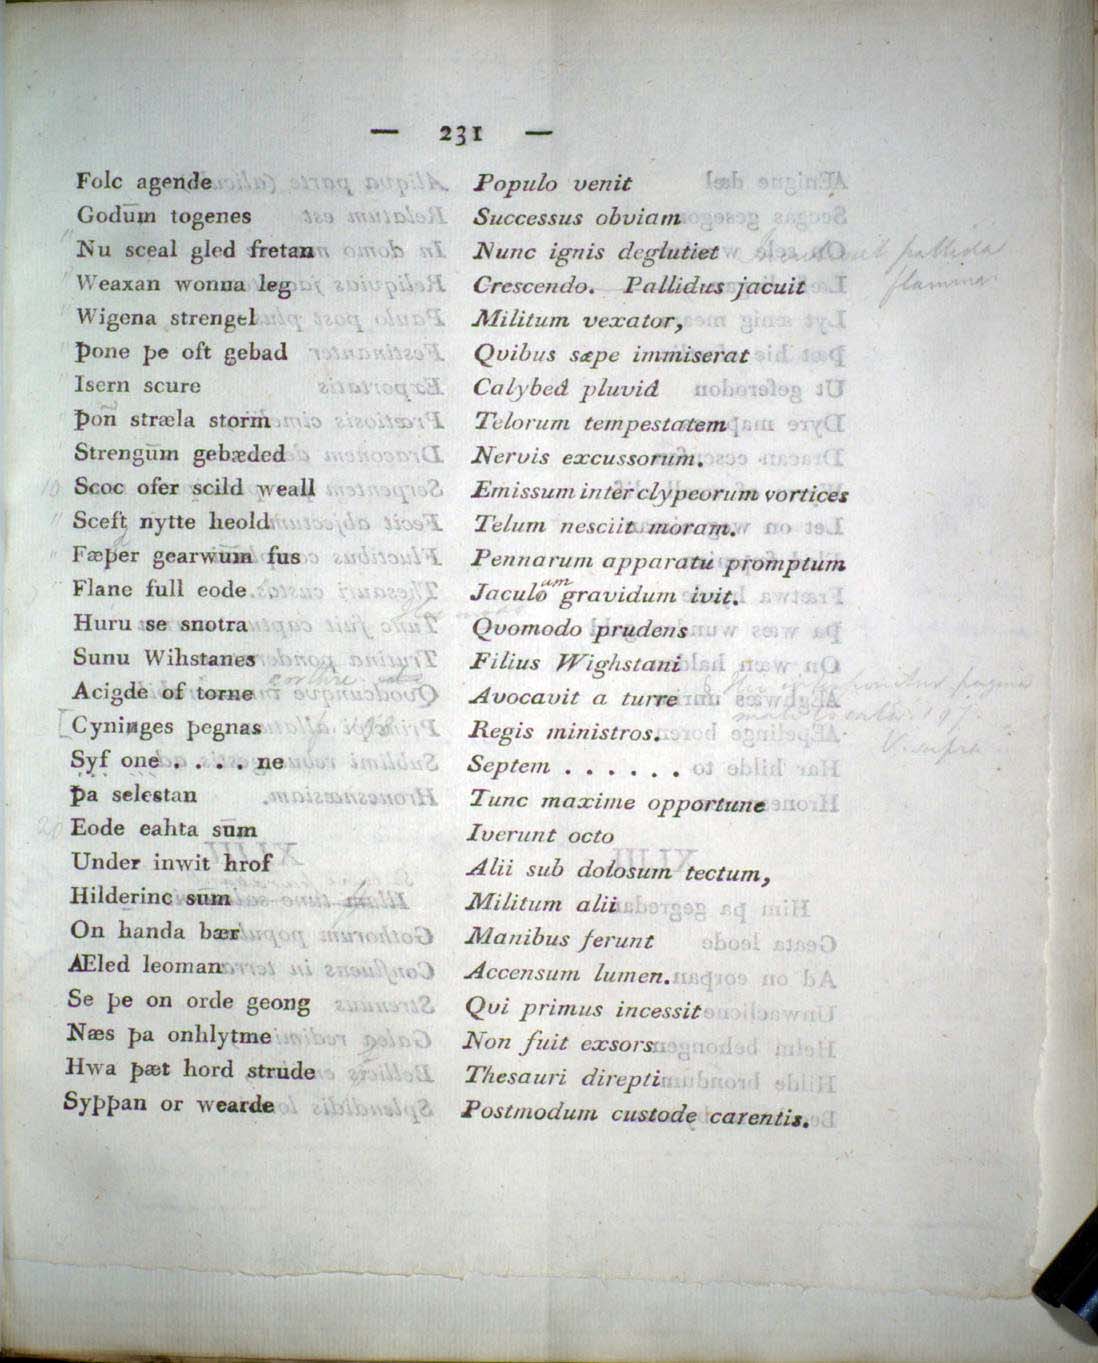 — 231 —
Folc agende Populo venit
Godum̅ togenes Successus obviam
Nu sceal gled fretan Nunc ignis deglutiet
Weaxan wonna leg Crescendo. Pallidus jacuit
Wigena strengel Militum vexator,
Þone þe oft gebad Qvibus sæpe immiserat
Isern scure Calybeâ pluviâ
Þon̅ stræla storm Telorum tempestatem
Strengum̅ gebæded Nervis excussorum.
Scoc ofer scild weall Emissum inter clypeorum vortices
Sceft nytte heold Telum nesciit moram.
Fæþer gearwum̅ fus Pennarum apparatu promptum
Flane full eode Jaculo um gravidum ivit.
Huru se snotra Qvomodo prudens
Sunu Wihstanes Filius Wighstani
Acigde of torne Avocavit a turre
Cyninges þegnas Regis ministros.
Syf one . . . . ne Septem . . . . . .
Þa selestan Tunc maxime opportune
Eode eahta sum̅ Iverunt octo
Under inwit hrof Alii sub dolosum tectum,
Hilderinc sum̅ Militum alii
On handa bær Manibus ferunt
Æled leoman Accensum lumen.
Se þe on orde geong Qvi primus incessit
Næs þa onhlytme Non fuit exsors
Hwa þæt hord strude Thesauri direpti
Syþþan or wearde Postmodum custode carentis.
pallida
flamina